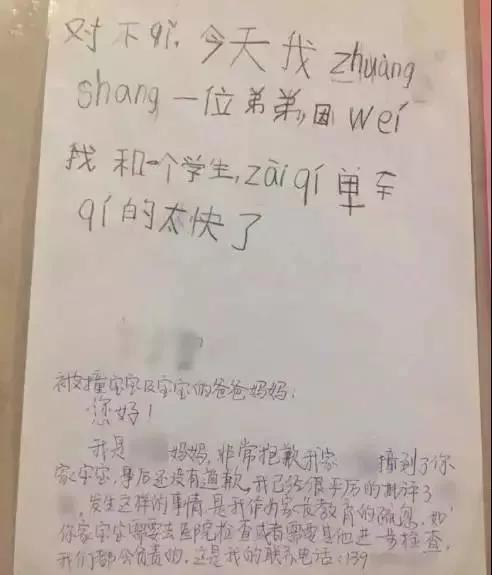 对不qǐ，今天我zhuàng
shang一位弟弟，因wéi
我和一个学生，zài qí单车
qí的太快了
被撞宝宝及宝宝的爸爸妈妈：
您好！
我是 妈妈，非常抱歉我家 撞到了你
家宝宝，事后还没有道歉，我已经很严厉的批评了
，发生这样的事情是我作为家长教育的疏忽，如
你家宝宝需要去医院检查或者需要其他进一步检查，
我们都会负责的，这是我的联系电话：139